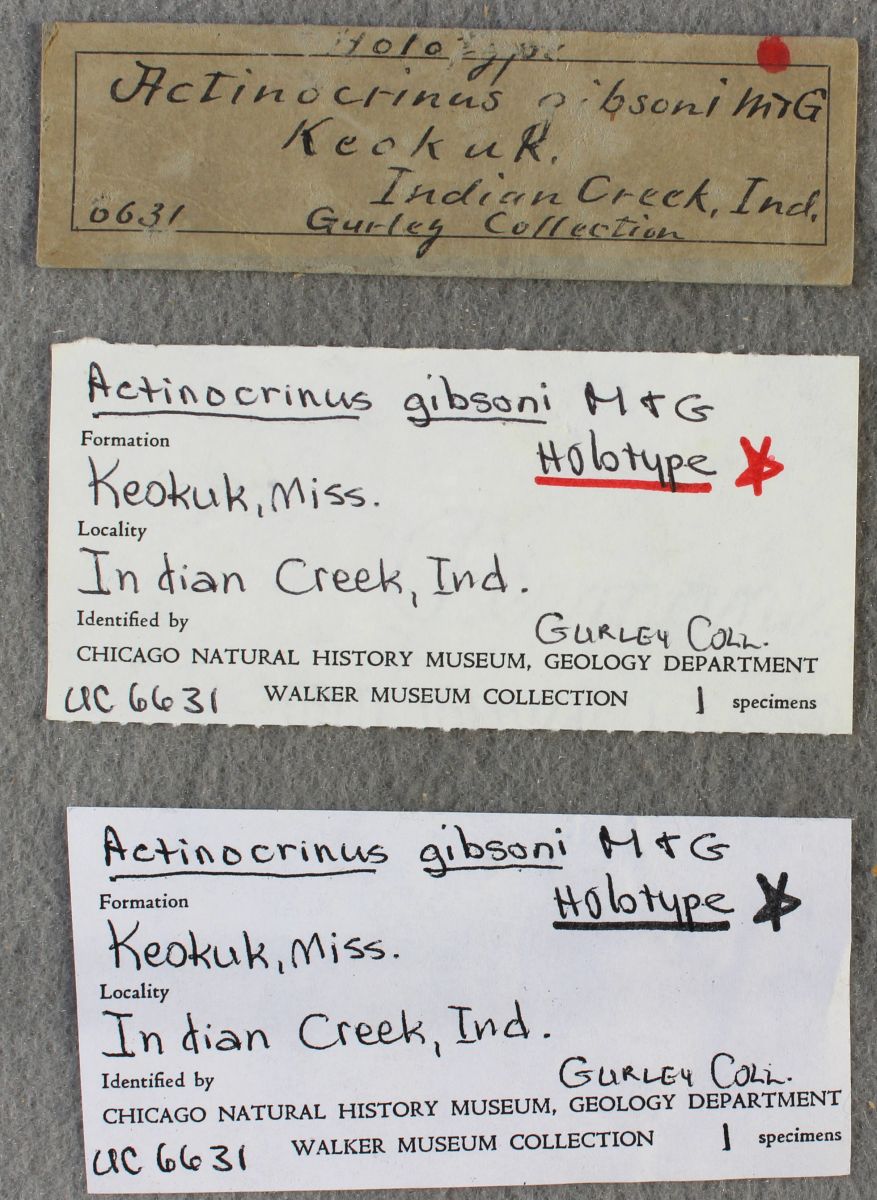 Holotype
Actinocrinus gibsoni M+G
Keokuk.
Indian Creek, Ind.
6631
Gurley Collection
Actinocrinus gibsoni M+G
Formation
Holotype
Keokuk, Miss.
Locality
Indian Creek, Ind.
Identified by
GURLEY COLL.
CHICAGO NATURAL HISTORY MUSEUM, GEOLOGY DEPARTMENT
UC 6631 WALKER MUSEUM COLLECTION 1 specimens
Actinocrinus gibsoni M+G
Formation
Holotype
Keokuk, Miss.
Locality
Indian Creek, Ind.
Identified by
GURLEY COLL.
CHICAGO NATURAL HISTORY MUSEUM, GEOLOGY DEPARTMENT
UC 6631 WALKER MUSEUM COLLECTION 1 specimens